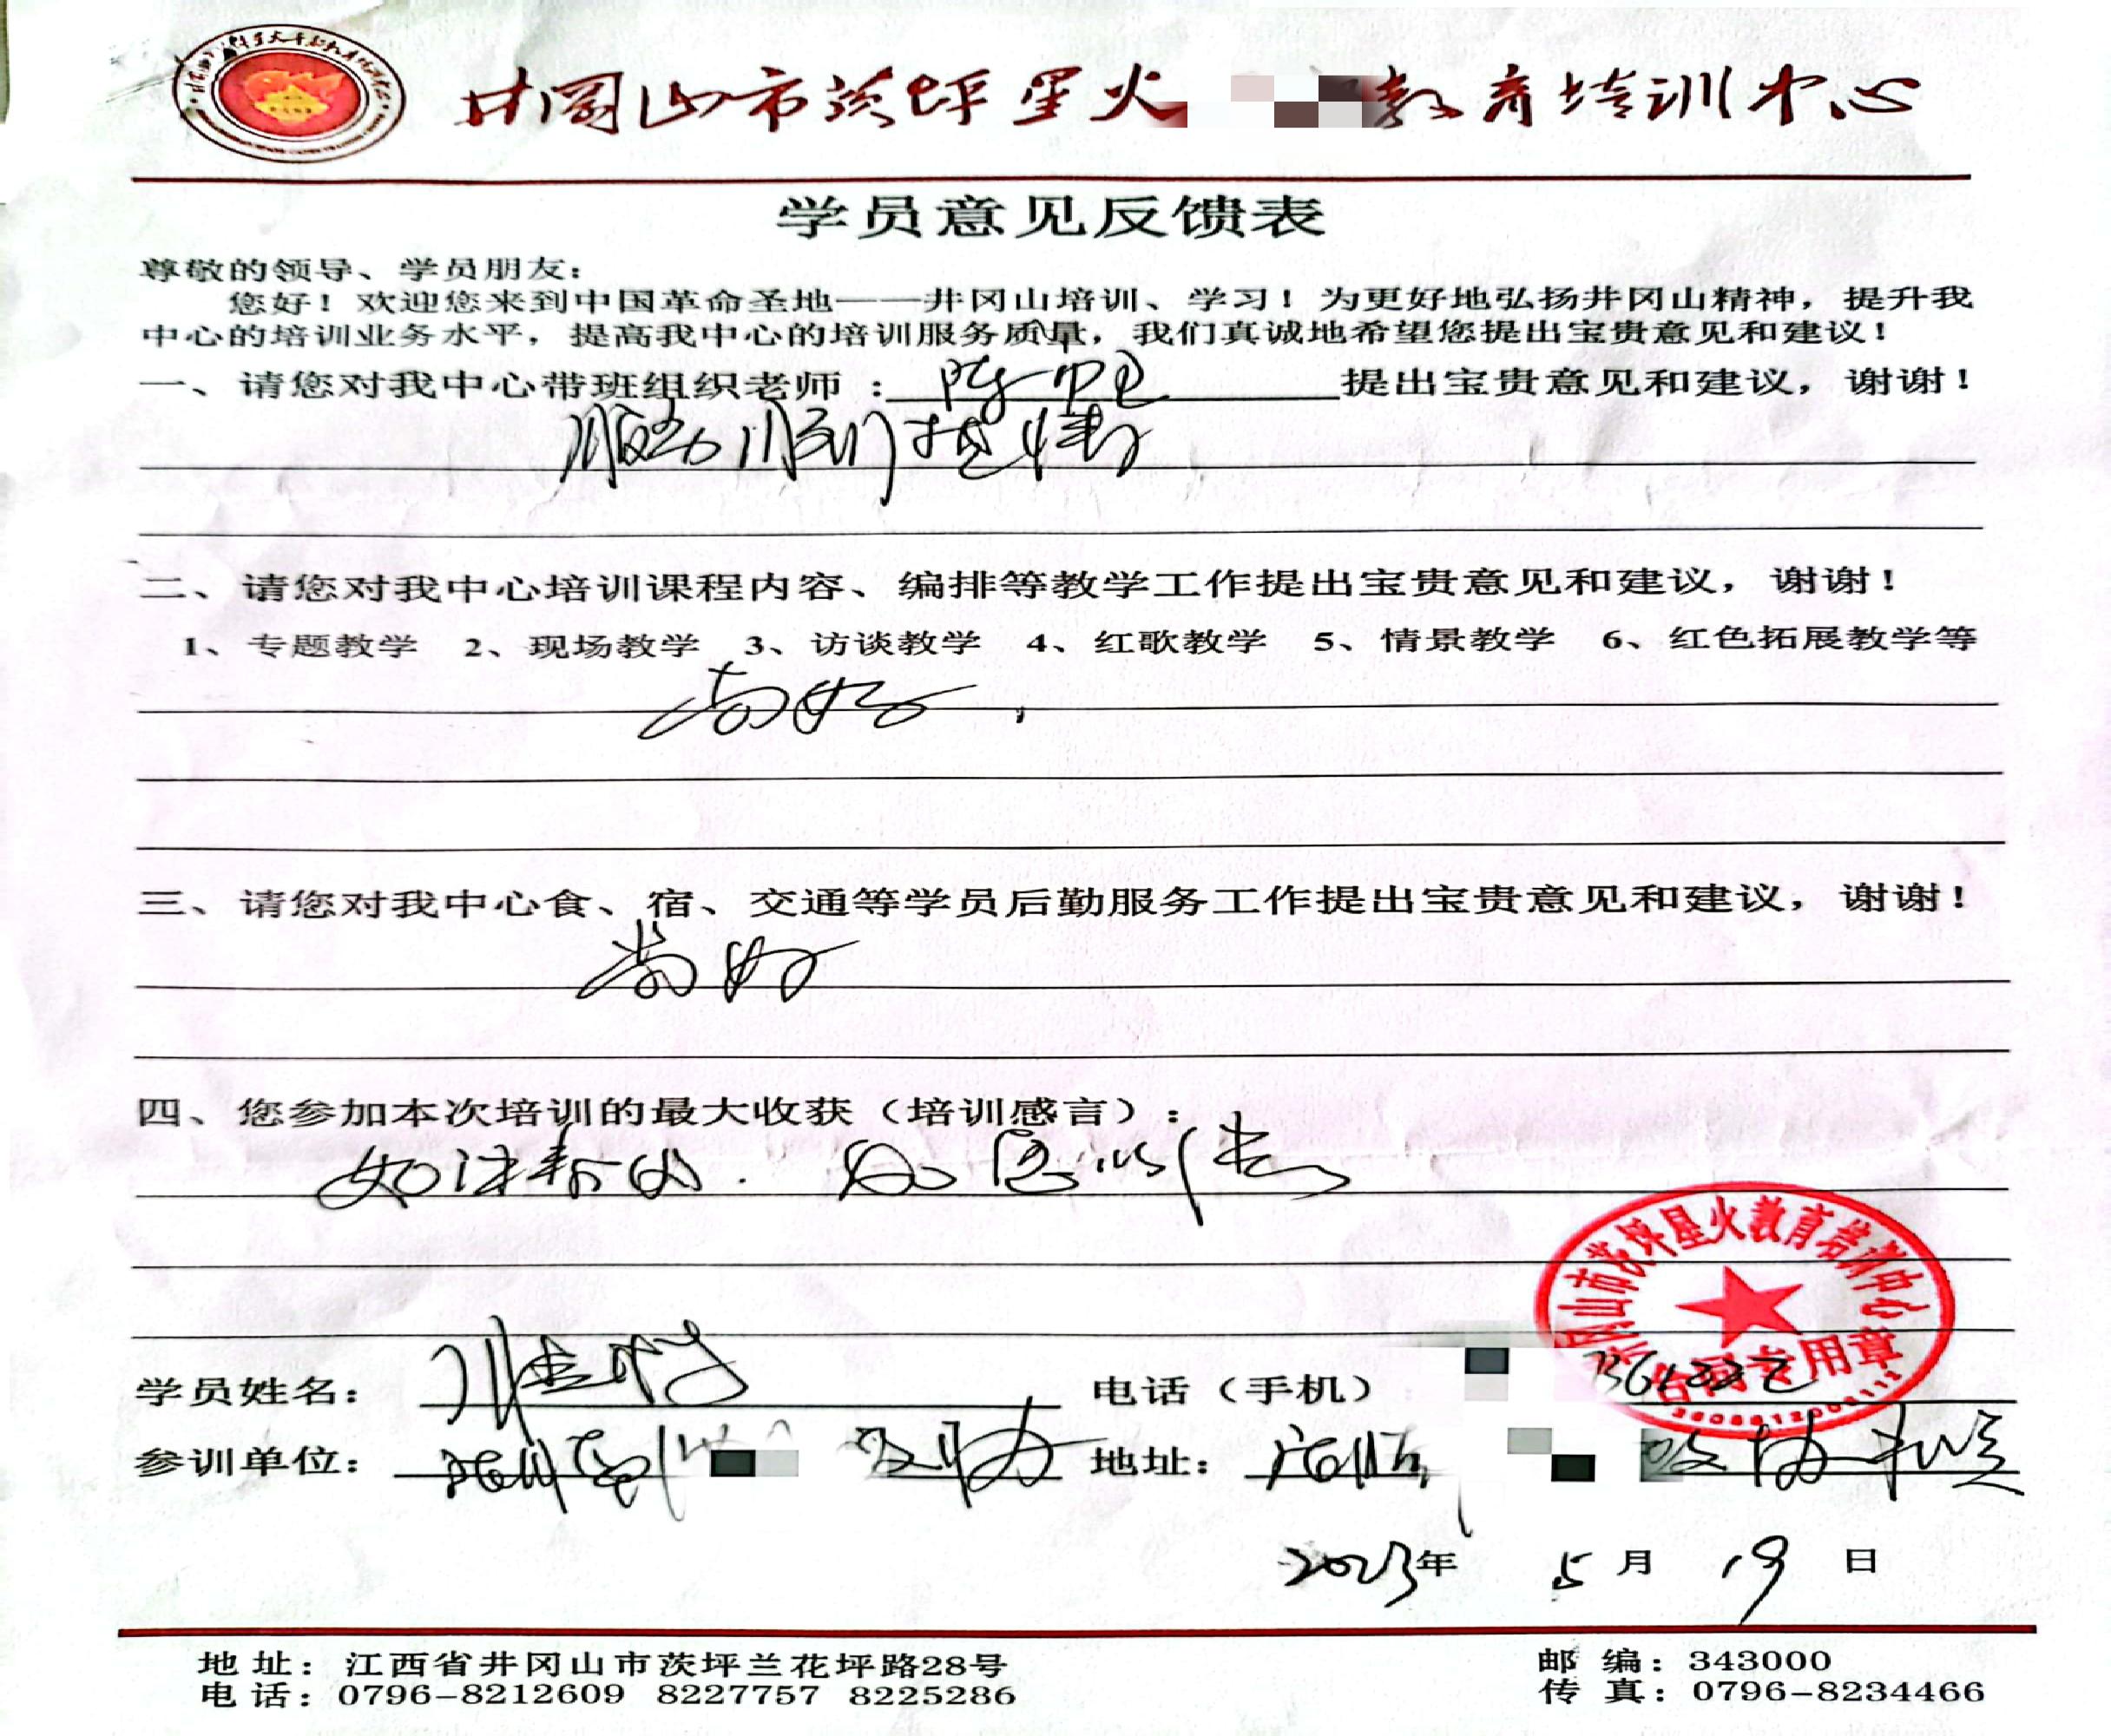 井冈山市茨坪星火 教育培训中心
学员意见反馈表
尊敬的领导、学员朋友：
您好！欢迎您来到中国革命圣地——井冈山培训、学习！为更好地弘扬井冈山精神，提升我
中心的培训业务水平，提高我中心的培训服务质量，我们真诚地希望您提出宝贵意见和建议！
一、请您对我中心带班组织老师：陈 提出宝贵意见和建议，谢谢！
二、请您对我中心培训课程内容、编排等教学工作提出宝贵意见和建议，谢谢！
1、专题教学 2、现场教学 3、访谈教学 4、红歌教学 5、情景教学 6、红色拓展教学等
尚好
三、请您对我中心食、宿、交通等学员后勤服务工作提出宝贵意见和建议，谢谢！
尚好
四、您参加本次培训的最大收获（培训感言）：
井冈山市茨坪星火教育培训中心
合同专用章
学员姓名： 电话（手机）
参训单位： 地址： 政协
2023年 5月 19日
地址：江西省井冈山市茨坪兰花坪路28号 邮编：343000
电话：0796-8212609 8227757 8225286 传真：0796-8234466